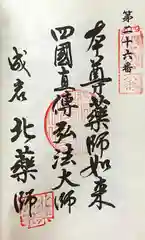 第二十六番
本尊薬師如来
四國直傳弘法大師
北薬師